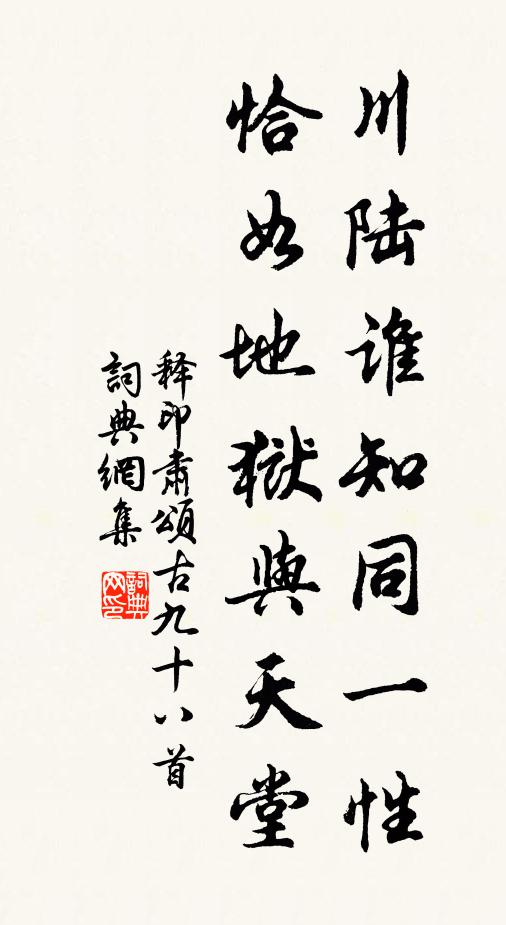 川陆谁知同一性
恰如地獄與天堂
释印肃頌古九十八首
詞典網集
詞典网印